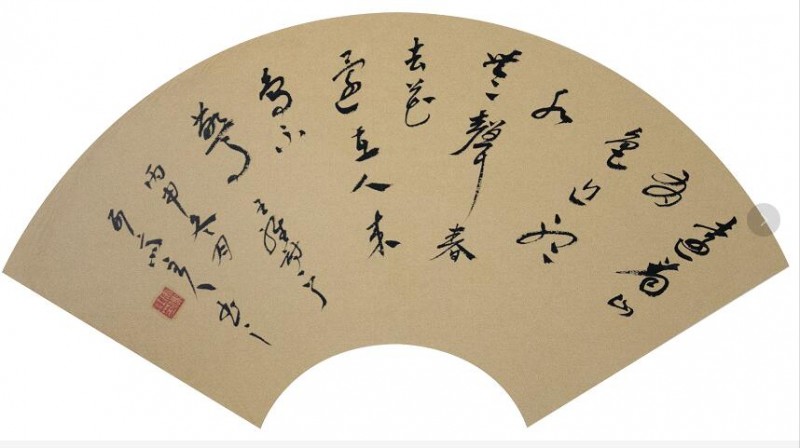 遠看山
有
色近
聽
水
無聲春
去花
還在人來
鳥不
驚
王維詩一首
丙申冬月